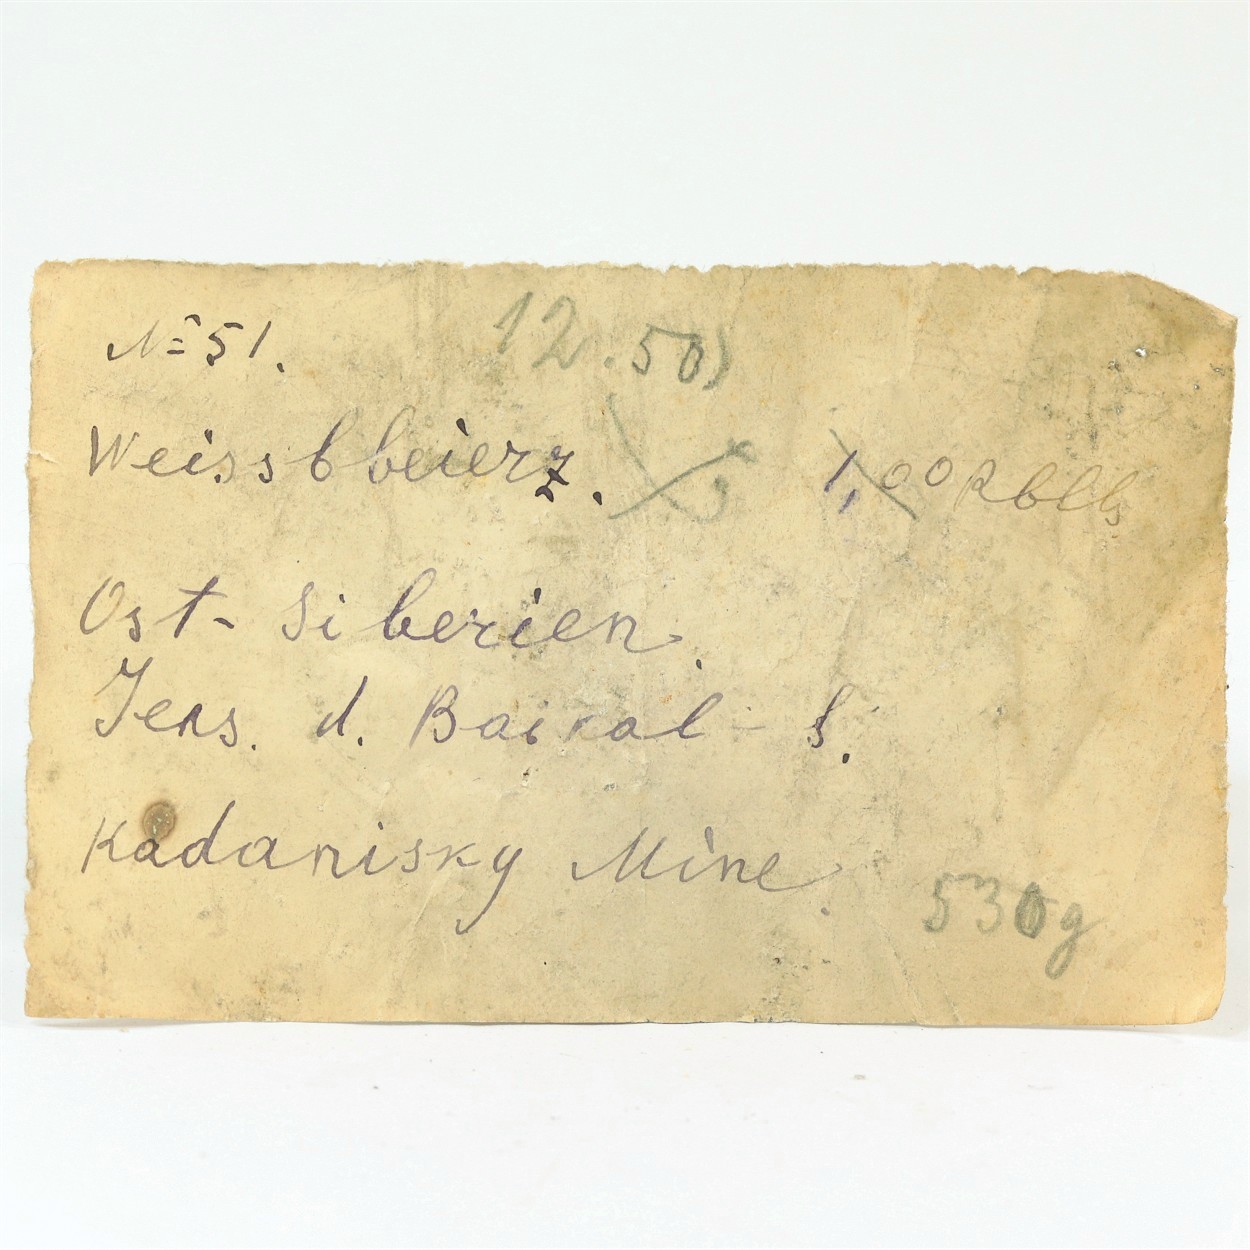 № 51. 12.50
Weissbbeierz. 1,00 Rbls
Ost-Siberien.
Jens. d. Baikal-S.
Kadainsky Mine.
530g